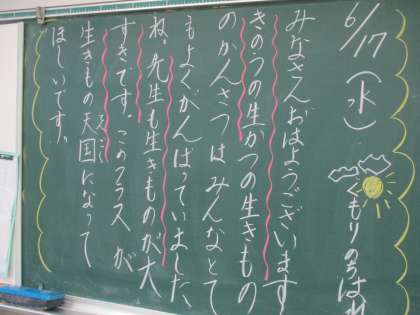 6/17(水)
くもりのちはれ
みなさんおはようございます
きのうの生かつの生きもの
のかんさつはみんなとて
もよくがんばっていました
ね。先生も生きものが大
すきです。このクラスが
生きもの天国になって
ほしいです。